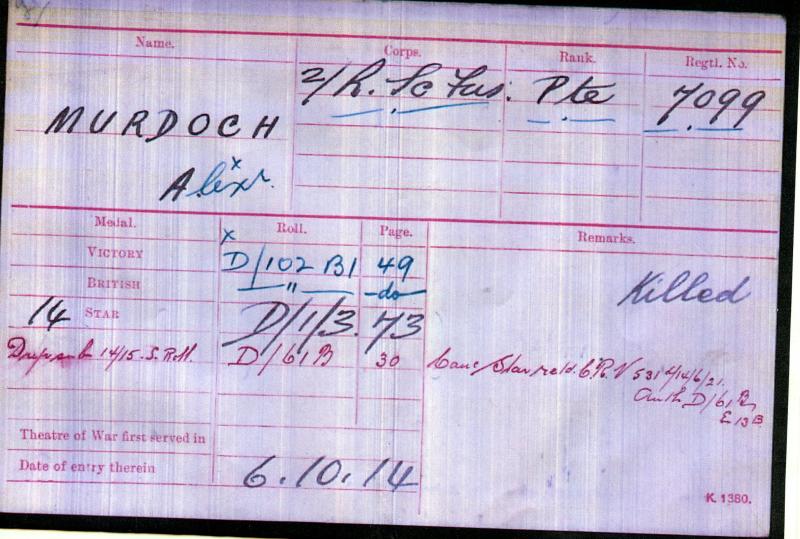 Name. Corps. Rank. Regtl. No.
2/R. Sc Fus. Pte 7099
MURDOCH
x
Alexr.
Medal. Roll. Page. Remarks.
x
VICTORY D/102 B1 49
BRITISH " -do-
Killed
14 STAR D/1/3. 73
14/15. S. Roll. D/61B 30
Star retd. C.R.V 531 14/6/21.
Auth D/61 B
E 13 B
Theatre of War first served in
Date of entry therein 6.10.14
K. 1380.